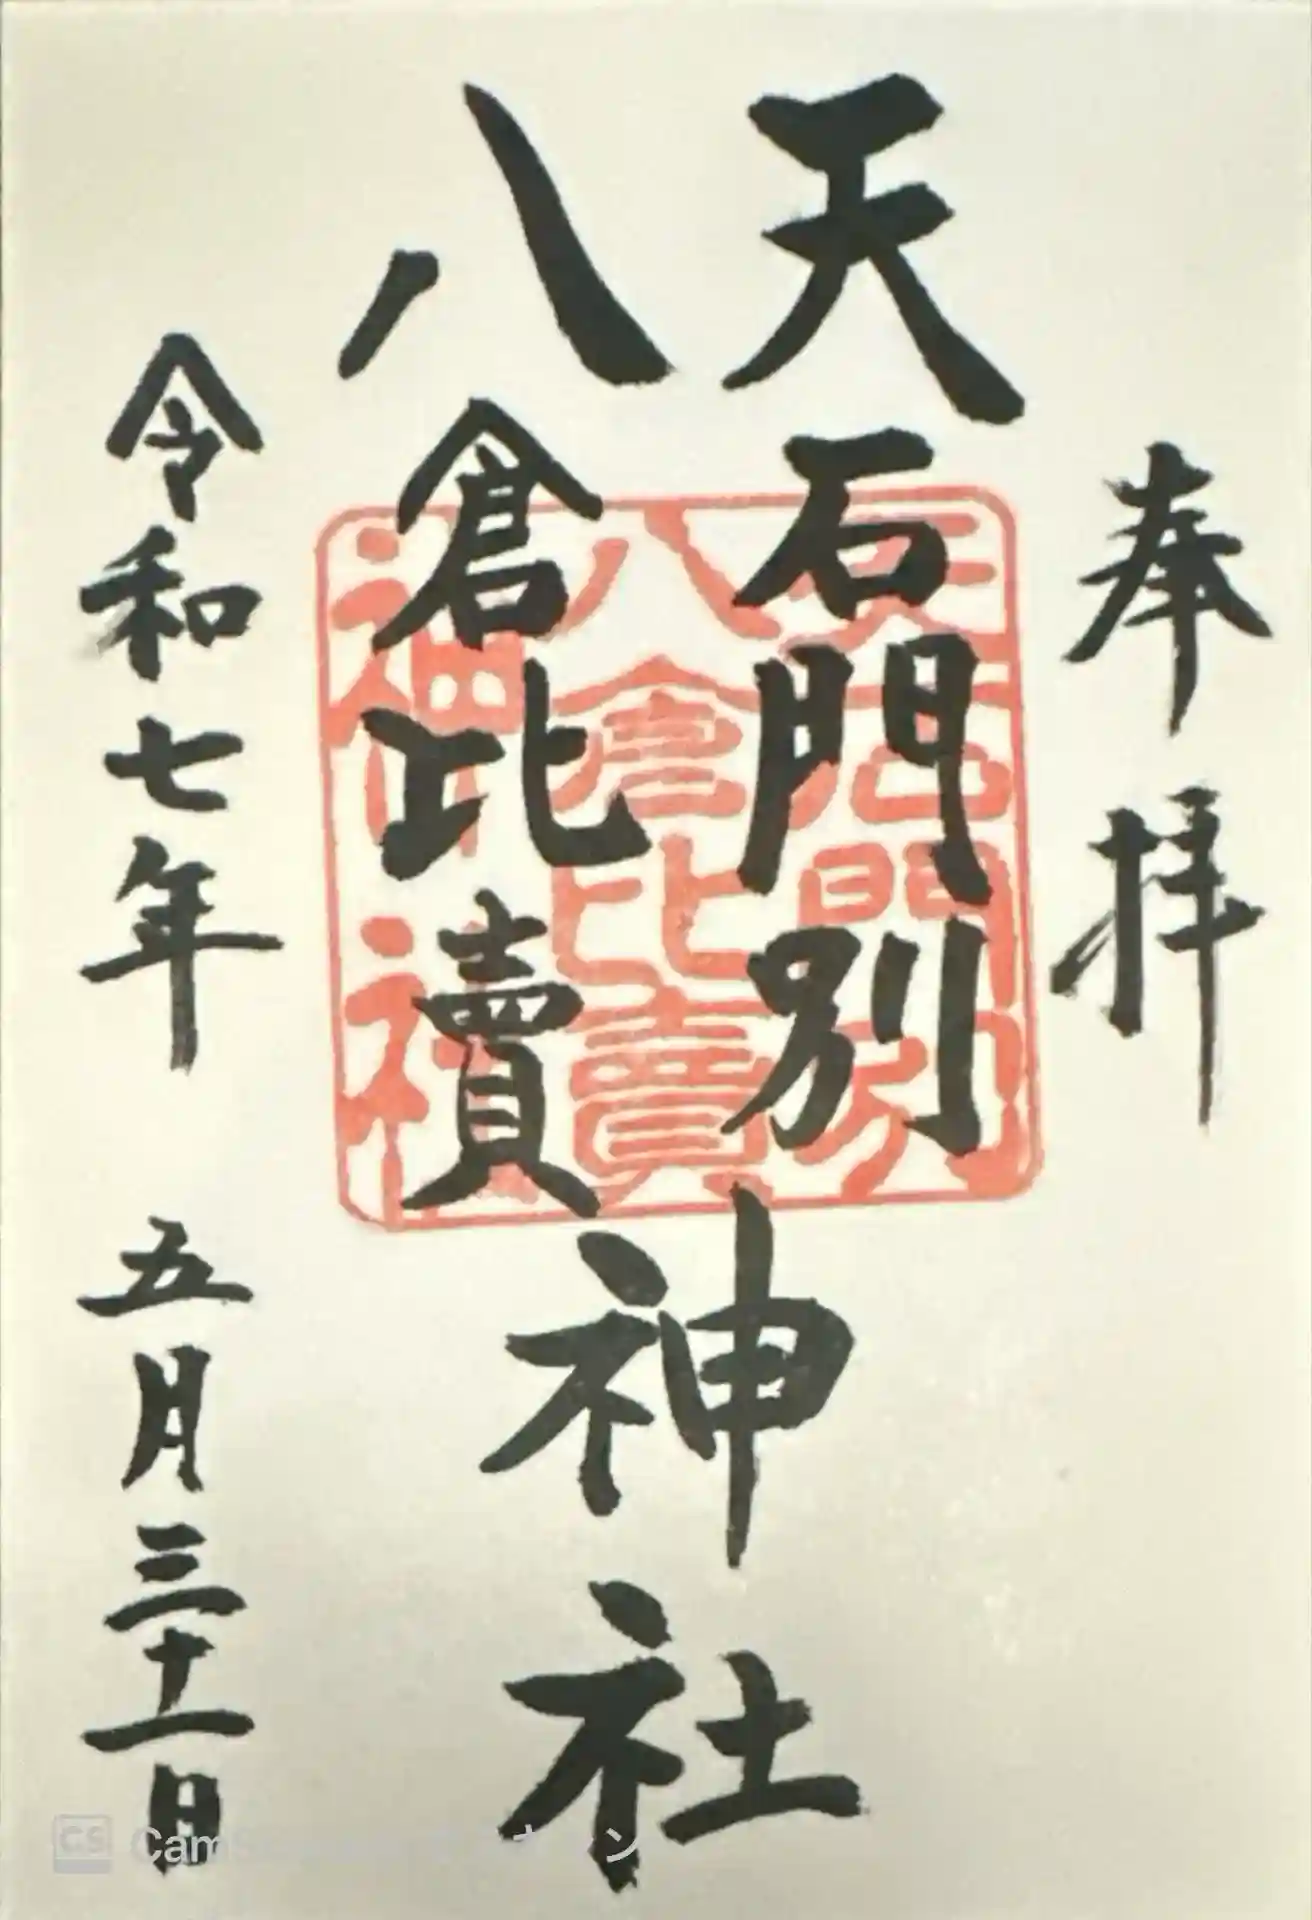 奉拝
天石門別
八倉比賣
神社
令和七年 五月三十一日
天石門別
八倉比賣
神社
CS CamS